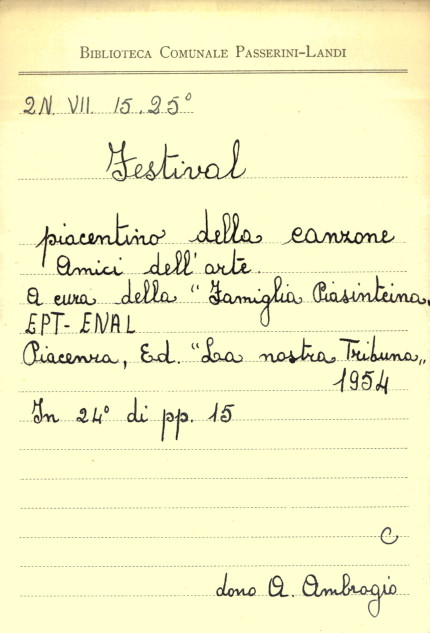 BIBLIOTECA COMUNALE PASSERINI-LANDI
2N. VII. 15.25°
Festival
piacentino della canzone
Amici dell'arte.
A cura della "Famiglia Piasinteina,
EPT-ENAL
Piacenza, Ed. "La nostra Tribuna„
1954
In 24° di pp. 15
C
dono A. Ambrogio